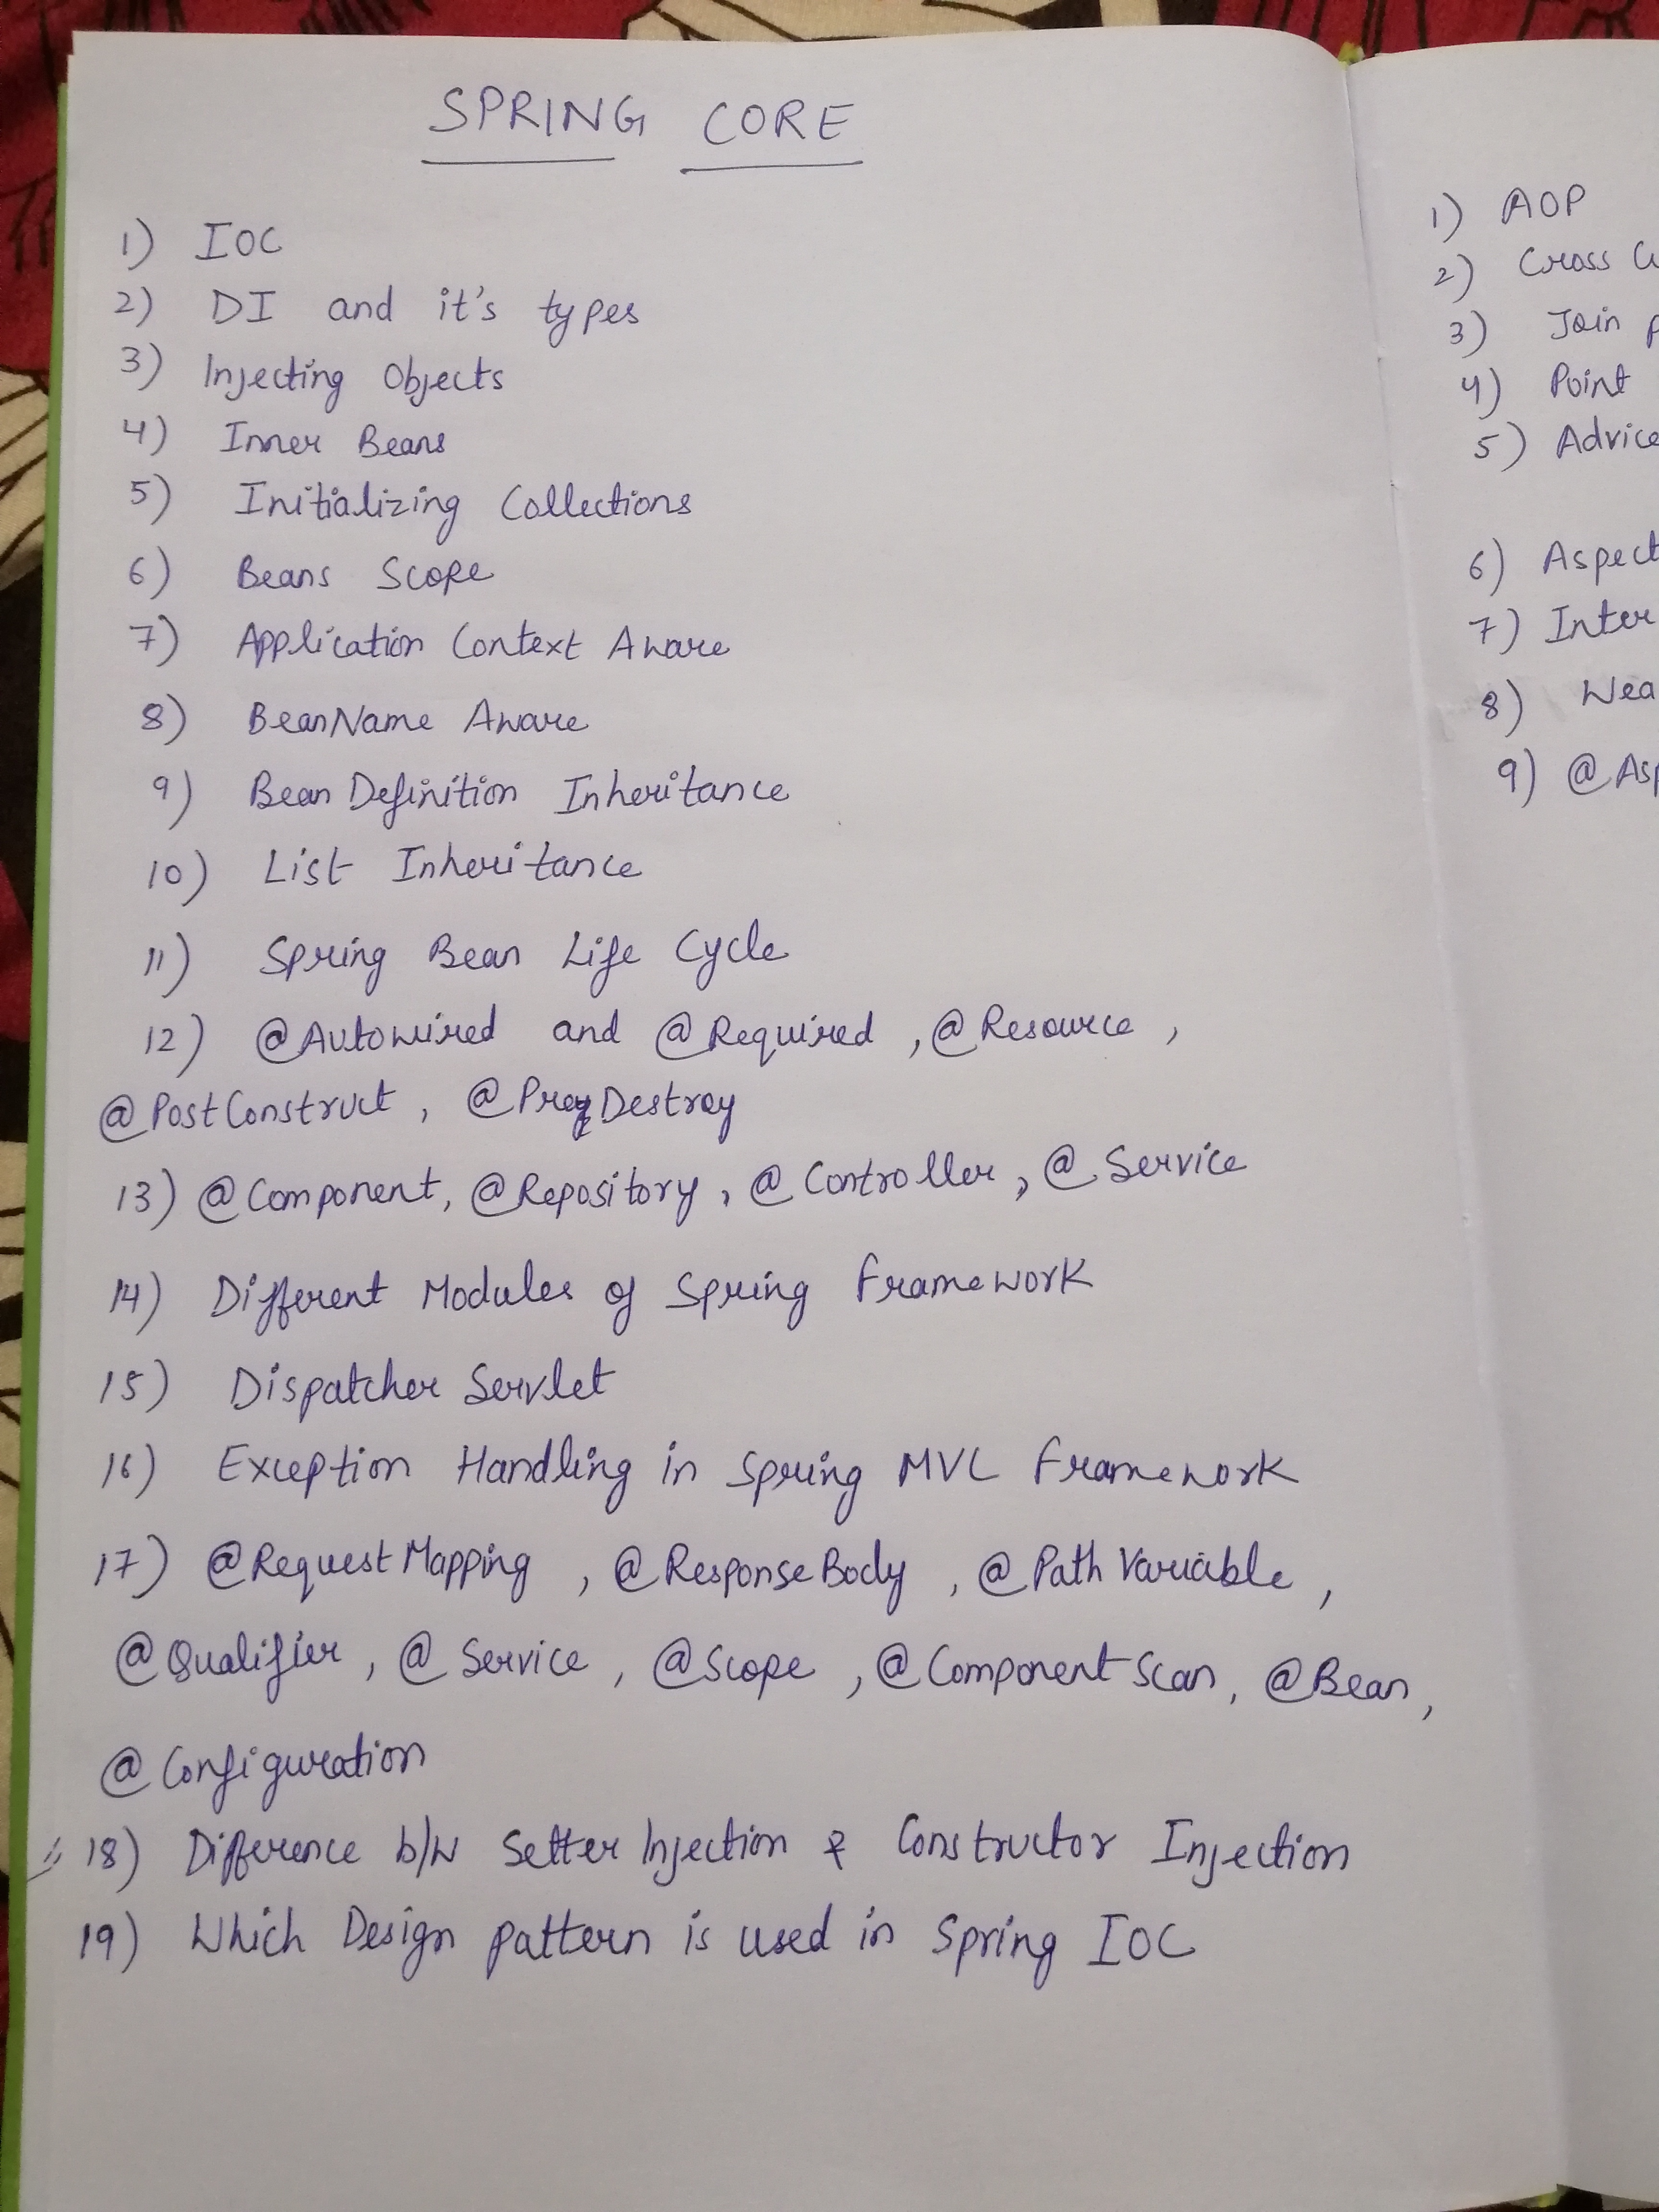 SPRING CORE
1) IOC
2) DI and it's types
3) Injecting Objects
4) Inner Beans
5) Initializing Collections
6) Beans Scope
7) Application Context Aware
8) BeanName Aware
9) Bean Definition Inheritance
10) List Inheritance
11) Spring Bean Life Cycle
12) @Autowired and @Required , @Resource ,
@PostConstruct , @PreDestroy
13) @Component, @Repository , @Controller , @Service
14) Different Modules of Spring Framework
15) Dispatcher Servlet
16) Exception Handling in Spring MVC Framework
17) @RequestMapping , @ResponseBody , @PathVariable ,
@Qualifier , @Service , @Scope , @ComponentScan , @Bean ,
@Configuration
18) Difference b/w Setter Injection & Constructor Injection
19) Which Design pattern is used in Spring IOC
1) AOP
2) Cross
3) Join
4) Point
5) Advice
6) Aspect
7) Inter
8)
9)